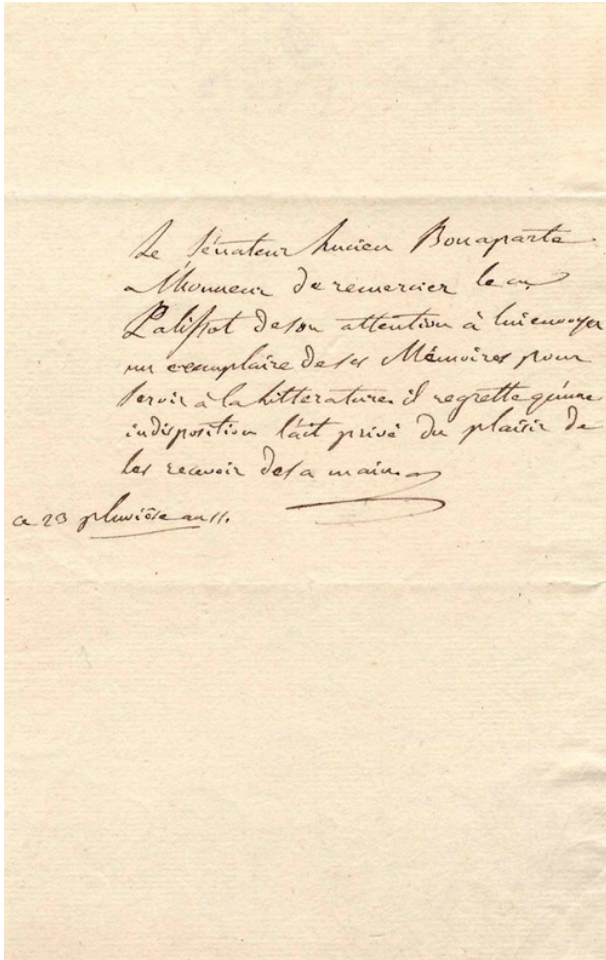 Le Sénateur Lucien Bonaparte
a l'honneur de remercier le cn
Palissot de son attention à lui envoyer
un exemplaire de ses Mémoires pour
servir à la litterature. il regrette qu'une
indisposition l'ait privé du plaisir de
les recevoir de sa main.
ce 23 pluviôse an 11.